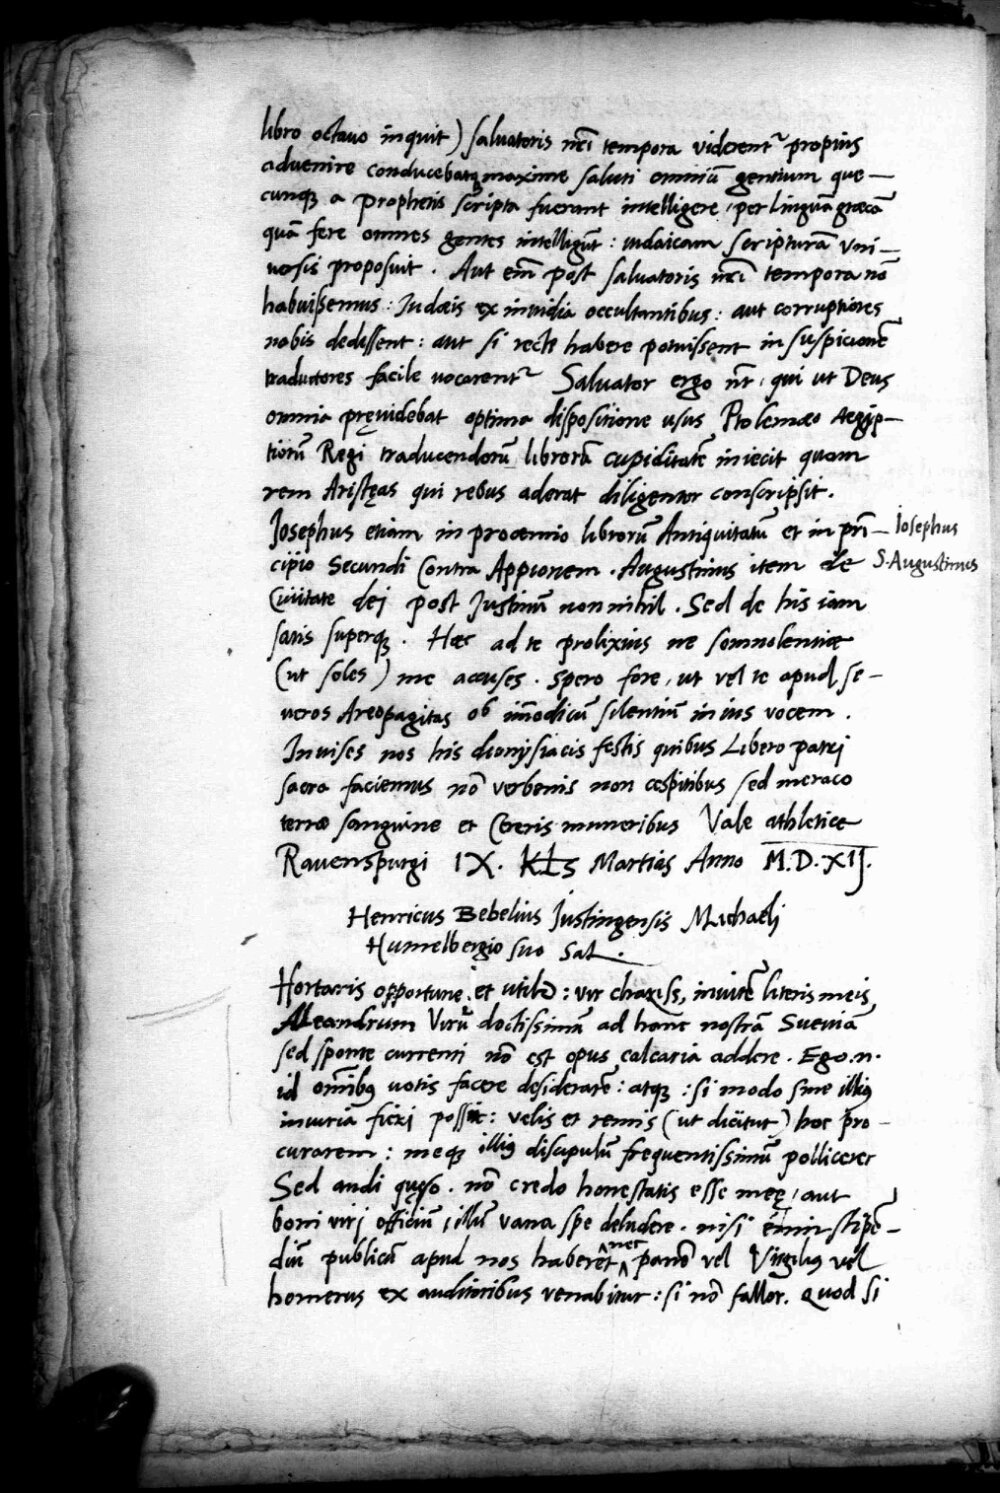 libro octauo inquit) saluatoris nr̃i tempora viderent᷑ propius
aduenire conducebatqȝ maxime saluti omniũ gentium que—
cunqȝ a Prophetis scripta fuerant intelligere, per linguã græcã
quã fere omnes gentes intelligũt : iudaicam scripturã vni—
uersis proposuit. Aut em̃ post saluatoris nr̃i tempora nõ
habuissemus : Iudæis ex inuidia occultantibus : aut corruptiores
nobis dedissent : aut si recte habere potuissent in suspicionẽ
traductores facile uocarent᷑ Saluator ergo nr̃, qui ut Deus
omnia pręuidebat optima dispositione usus Ptolemæo Aegip—
tiorũ Regi traducendorũ librorũ cupiditatẽ iniecit quam
rem Aristęas qui rebus aderat diligenter conscripsit.
Iosephus etiam in proœmio librorũ Antiquitatũ et in prĩ— Iosephus
cipio Secundi Contra Appionem. Augustinus item de S. Augustinus
Ciuitate dej post Iustinũ nonnihil. Sed de his iam
satis superqȝ. Hæc ad te prolixius ne somnolentiæ
(ut soles) me accuses. Spero fore, ut vel te apud se—
ueros Areopagitas ob im̃odicũ silentiũ in ius vocem.
Inuises nos his dionysiacis festis quibus Libero patrj
sacra faciemus nõ verbenis non cespitibus sed meraco
terræ sanguine et Cereris muneribus Vale athletice
Rauenspurgi IX. Kls Martias Anno M.D.XIJ.
Henricus Bebelius Iustingensis Michaelj
Humelbergio suo Sal.
Hortaris opportune, et utilr̃ : vir chariss, inuitẽ literis meis
Aleandrum Virũ doctissimũ ad hanc nostrã Sueuiã
sed sponte currenti nõ est opus calcaria addere. Ego.n.
id om̃ibꝯ uotis facere desiderarẽ : atqȝ : si modo sine illiꝯ
iniuria fierj possit : velis et remis (ut dicitur) hoc pro—
curarem : meqȝ illiꝯ discipulũ frequentissimũ pollicerer
Sed audi quęso. nõ credo honestatis esse meę, aut
boni virj officiũ, illũ vana spe deludere. nisi enim stipẽ—
diũ publicũ apud nos haberet nec panẽ vel Virgiliꝯ vel
homerus ex auditoribus venabitur : si nõ fallor. Quod si